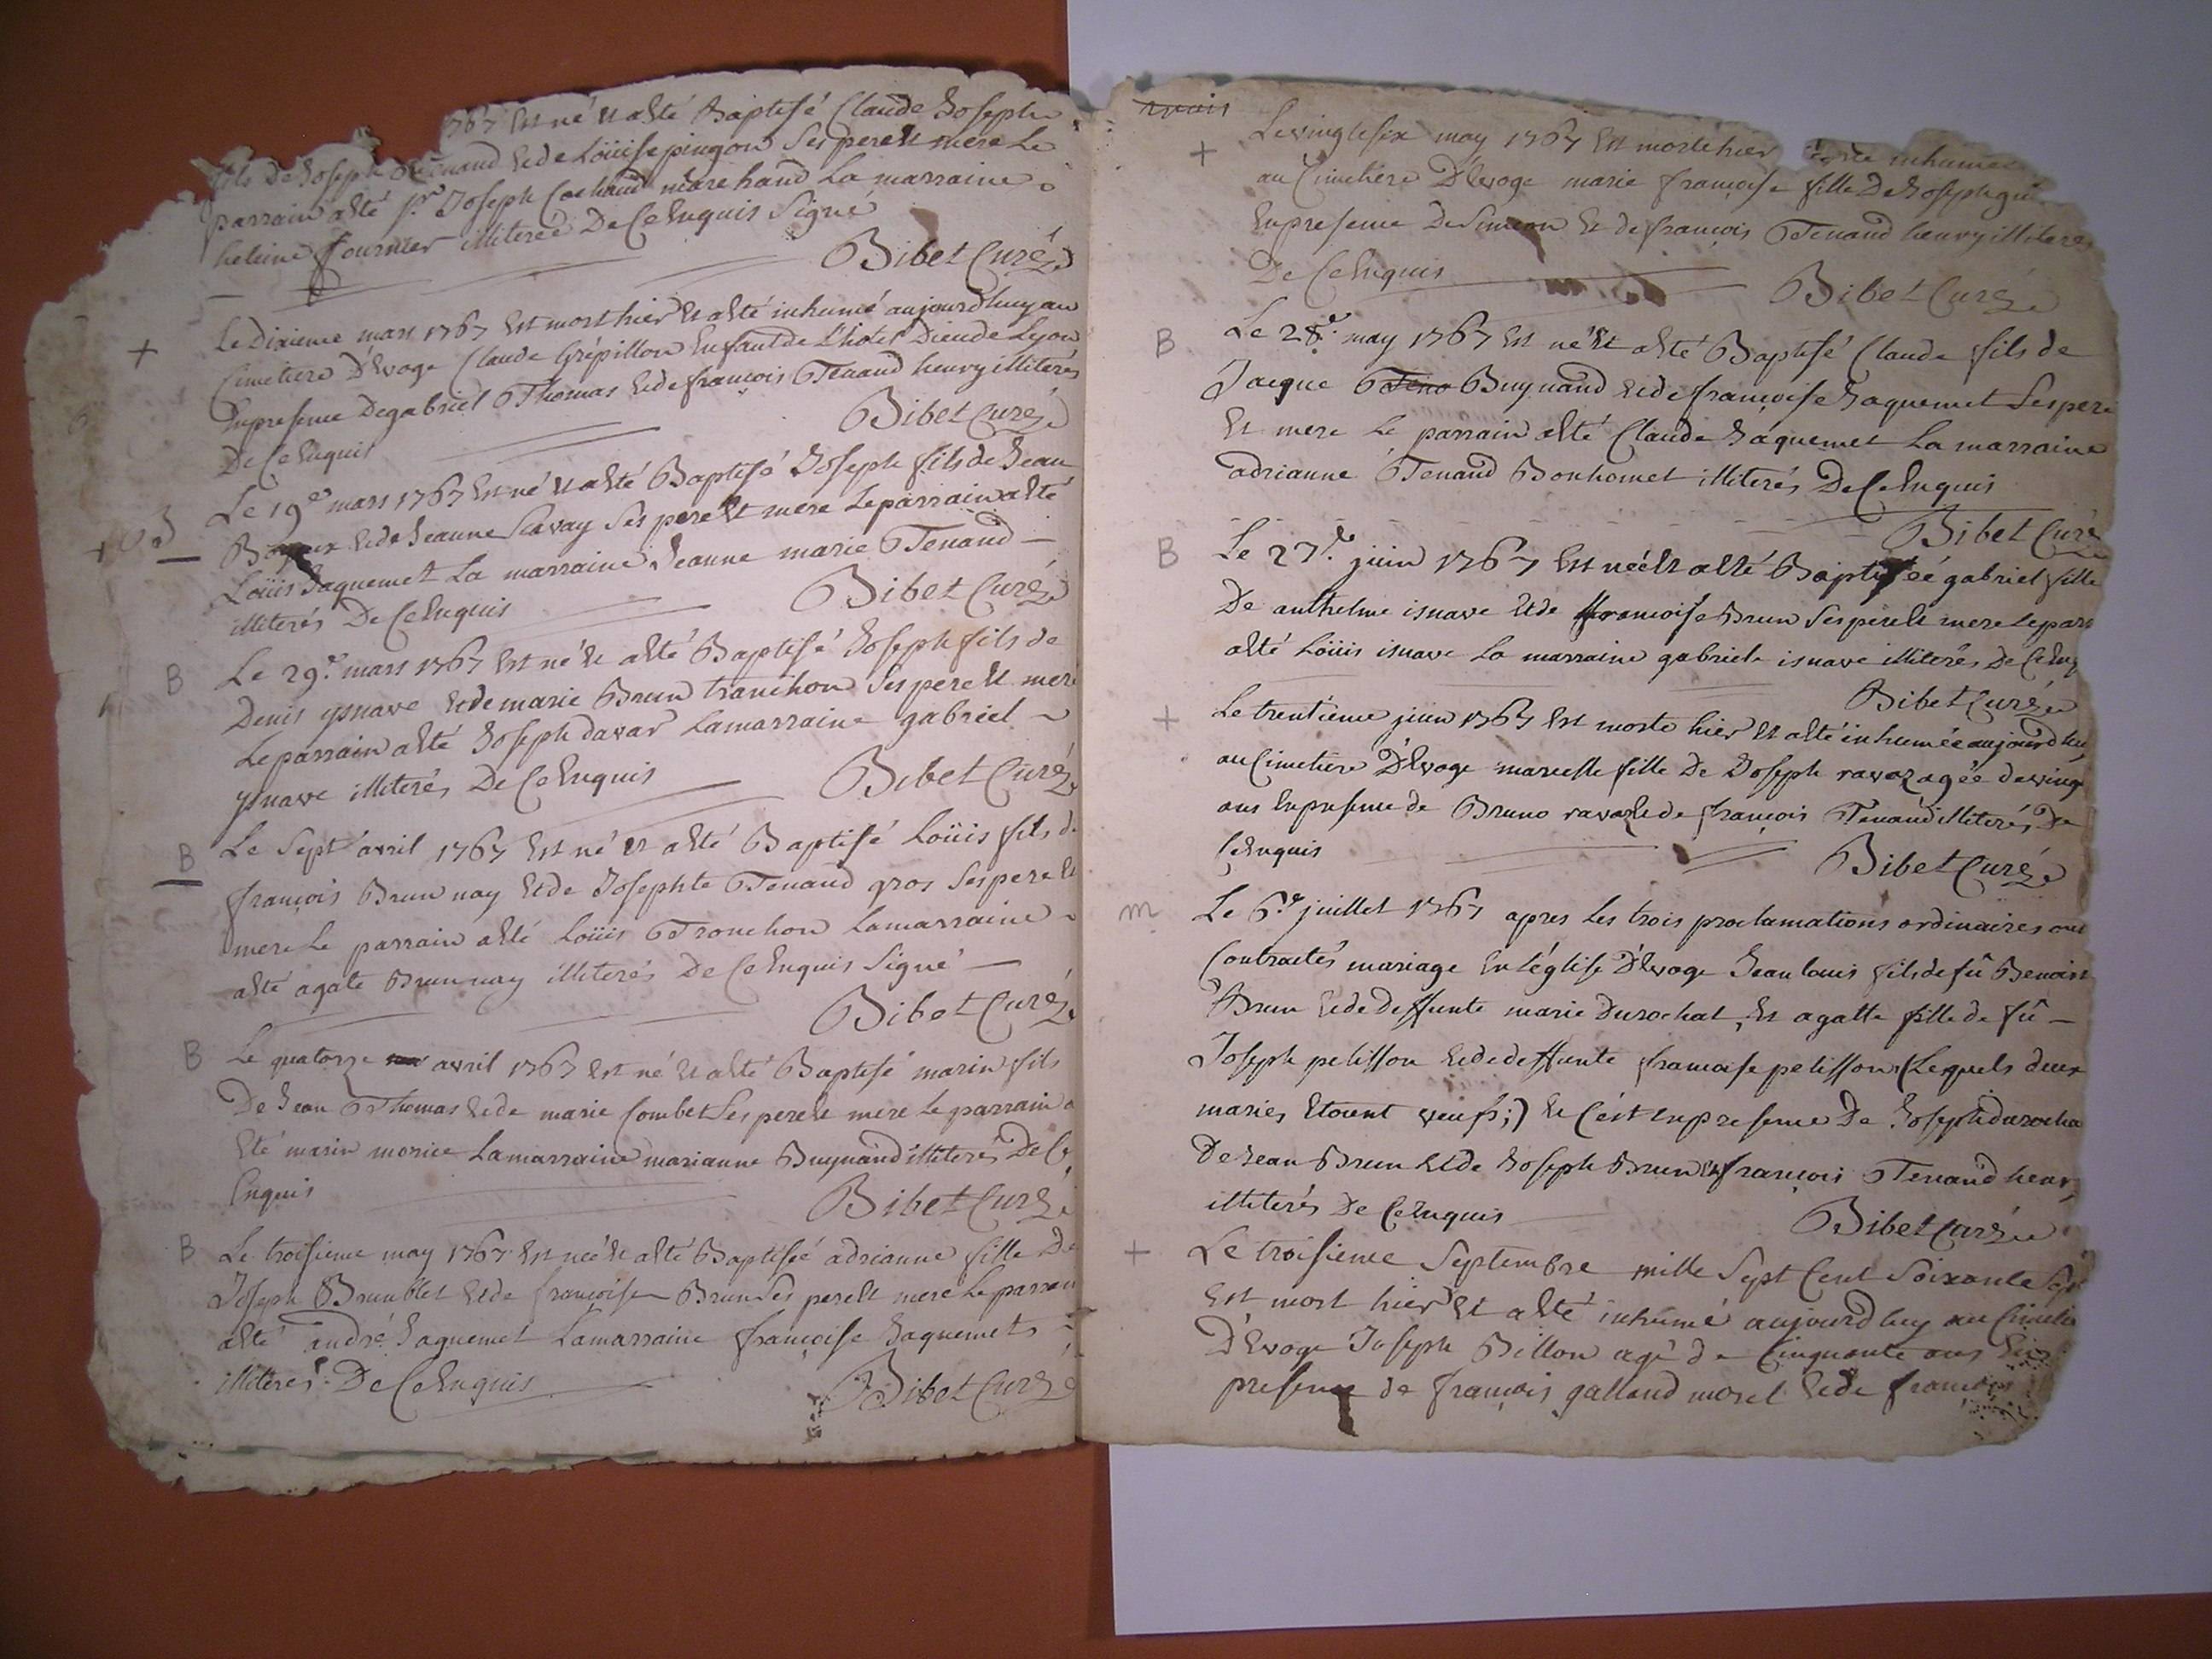 1767 Est né Et a Eté Baptisé Claude Joseph
fils De Joseph Tenand Et de Loüise pingon Ses pere Et mere Le
parrain a Eté Sr Joseph Cochaud marchand La marraine
heleine fournier illiterée De Ce Enquis Signé
Bibet Curé
+ Le Dixieme mars 1767 Est mort hier Et a Eté inhumé aujourdhuy au
Cimetiere D'Evoge Claude Grépillon Enfant de L'hotel Dieu de Lyon
En presence De gabriel Thomas Et de françois Tenand henry illiterés
De Ce Enquis
Bibet Curé
Le 19e mars 1767 Est né Et a Eté Baptisé Joseph fils de Jean
Et de Jeanne Savay Ses pere Et mere Le parrain a Eté
Loüis Jaquemet La marraine Jeanne marie Tenand
illiterés De Ce Enquis
Bibet Curé
B Le 29e mars 1767 Est né Et a Eté Baptisé Joseph fils de
Denis ysnave Et de marie Brun tranchon Ses pere Et mere
Le parrain a Eté Joseph davar La marraine gabriel
ysnave illiterés De Ce Enquis
Bibet Curé
B Le Sept avril 1767 Est né Et a Eté Baptisé Loüis fils d
françois Brun nay Et de Josephte Tenand gros Ses pere Et
mere Le parrain a Eté Loüis Tronchon La marraine
a Eté agate Brun nay illiterés De Ce Enquis Signé
Bibet Curé
B Le quatorze avril 1767 Est né Et a Eté Baptisé marin fils
De Jean Thomas Et de marie Combet Ses pere Et mere Le parrain a
Eté marin morice La marraine marianne Buynand illiterés De Ce
Enquis
Bibet Curé
B Le troisieme may 1767 Est neé Et a Eté Baptiseé adrianne fille De
Joseph Brun blet Et de francoise Brun Ses pere Et mere Le parrain
a Eté andré Jaquemet La marraine françoise Jaquemet
illiterés De Ce Enquis
Bibet Curé
+ Le vingt Six may 1767 Est morte hier inhumeé
au Cimetiere D'Evoge marie françoise fille De Joseph
En presence De Simeon Et de françois Tenand henry illiterés
De Ce Enquis
Bibet Curé
B Le 28e may 1767 Est né Et a Eté Baptisé Claude fils de
Jacque Teno Buynand Et de françoise Jaquemet Ses pere
Et mere Le parrain a Eté Claude Jaquemet La marraine
adrianne Tenand Bonhomet illiterés De Ce Enquis
Bibet Curé
B Le 27e juin 1767 Est neé Et a Eté Baptiseé gabriel fille
De anthelme isnave Et de francoise Brun Ses pere Et mere Le parr
a Eté Loüis isnave La marraine gabriele isnave illiterés De Ce Enq
Bibet Curé
+ Le trentieme juin 1767 Est morte hier Et a Eté inhumée aujourdhuy
au Cimetiere D'Evoge marcelle fille De Joseph ravaz agée de vingt
ans En presence de Bruno ravaz Et de françois Tenand illiterés De
Ce Enquis
Bibet Curé
m Le 6e juillet 1767 apres Les trois proclamations ordinaires ont
Contractés mariage En L'église D'Evoge Jean Louis fils de fû Benoist
Brun Et de Deffunte marie Durochat, Et agatte fille de fû
Joseph pelisson Et de deffunte francoise pelisson (Lesquels deux
mariés Etoient veufs;) Et C'est En presence De Joseph durocha
De Jean Brun Et de Joseph Brun Et françois Tenand henry
illiterés De Ce Enquis
Bibet Curé
+ Le troisieme Septembre mille Sept Cent Soixante Sept
Est mort hier Et a Eté inhumé aujourdhuy au Cimetie
D'Evoge Joseph Billon agé de Cinquante ans En
presence de françois galland morel Et de françois